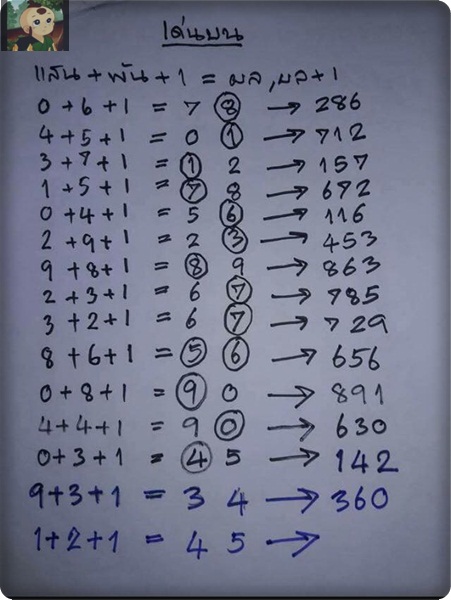 เด่นบน
แสน + พัน + 1 = ผล, ผล+1
0 + 6 + 1 = 7 8 → 286
4 + 5 + 1 = 0 1 → 712
3 + 7 + 1 = 1 2 → 157
1 + 5 + 1 = 7 8 → 672
0 + 4 + 1 = 5 6 → 116
2 + 9 + 1 = 2 3 → 453
9 + 8 + 1 = 8 9 → 863
2 + 3 + 1 = 6 7 → 785
3 + 2 + 1 = 6 7 → 729
8 + 6 + 1 = 5 6 → 656
0 + 8 + 1 = 9 0 → 891
4 + 4 + 1 = 9 0 → 630
0 + 3 + 1 = 4 5 → 142
9 + 3 + 1 = 3 4 → 360
1 + 2 + 1 = 4 5 →